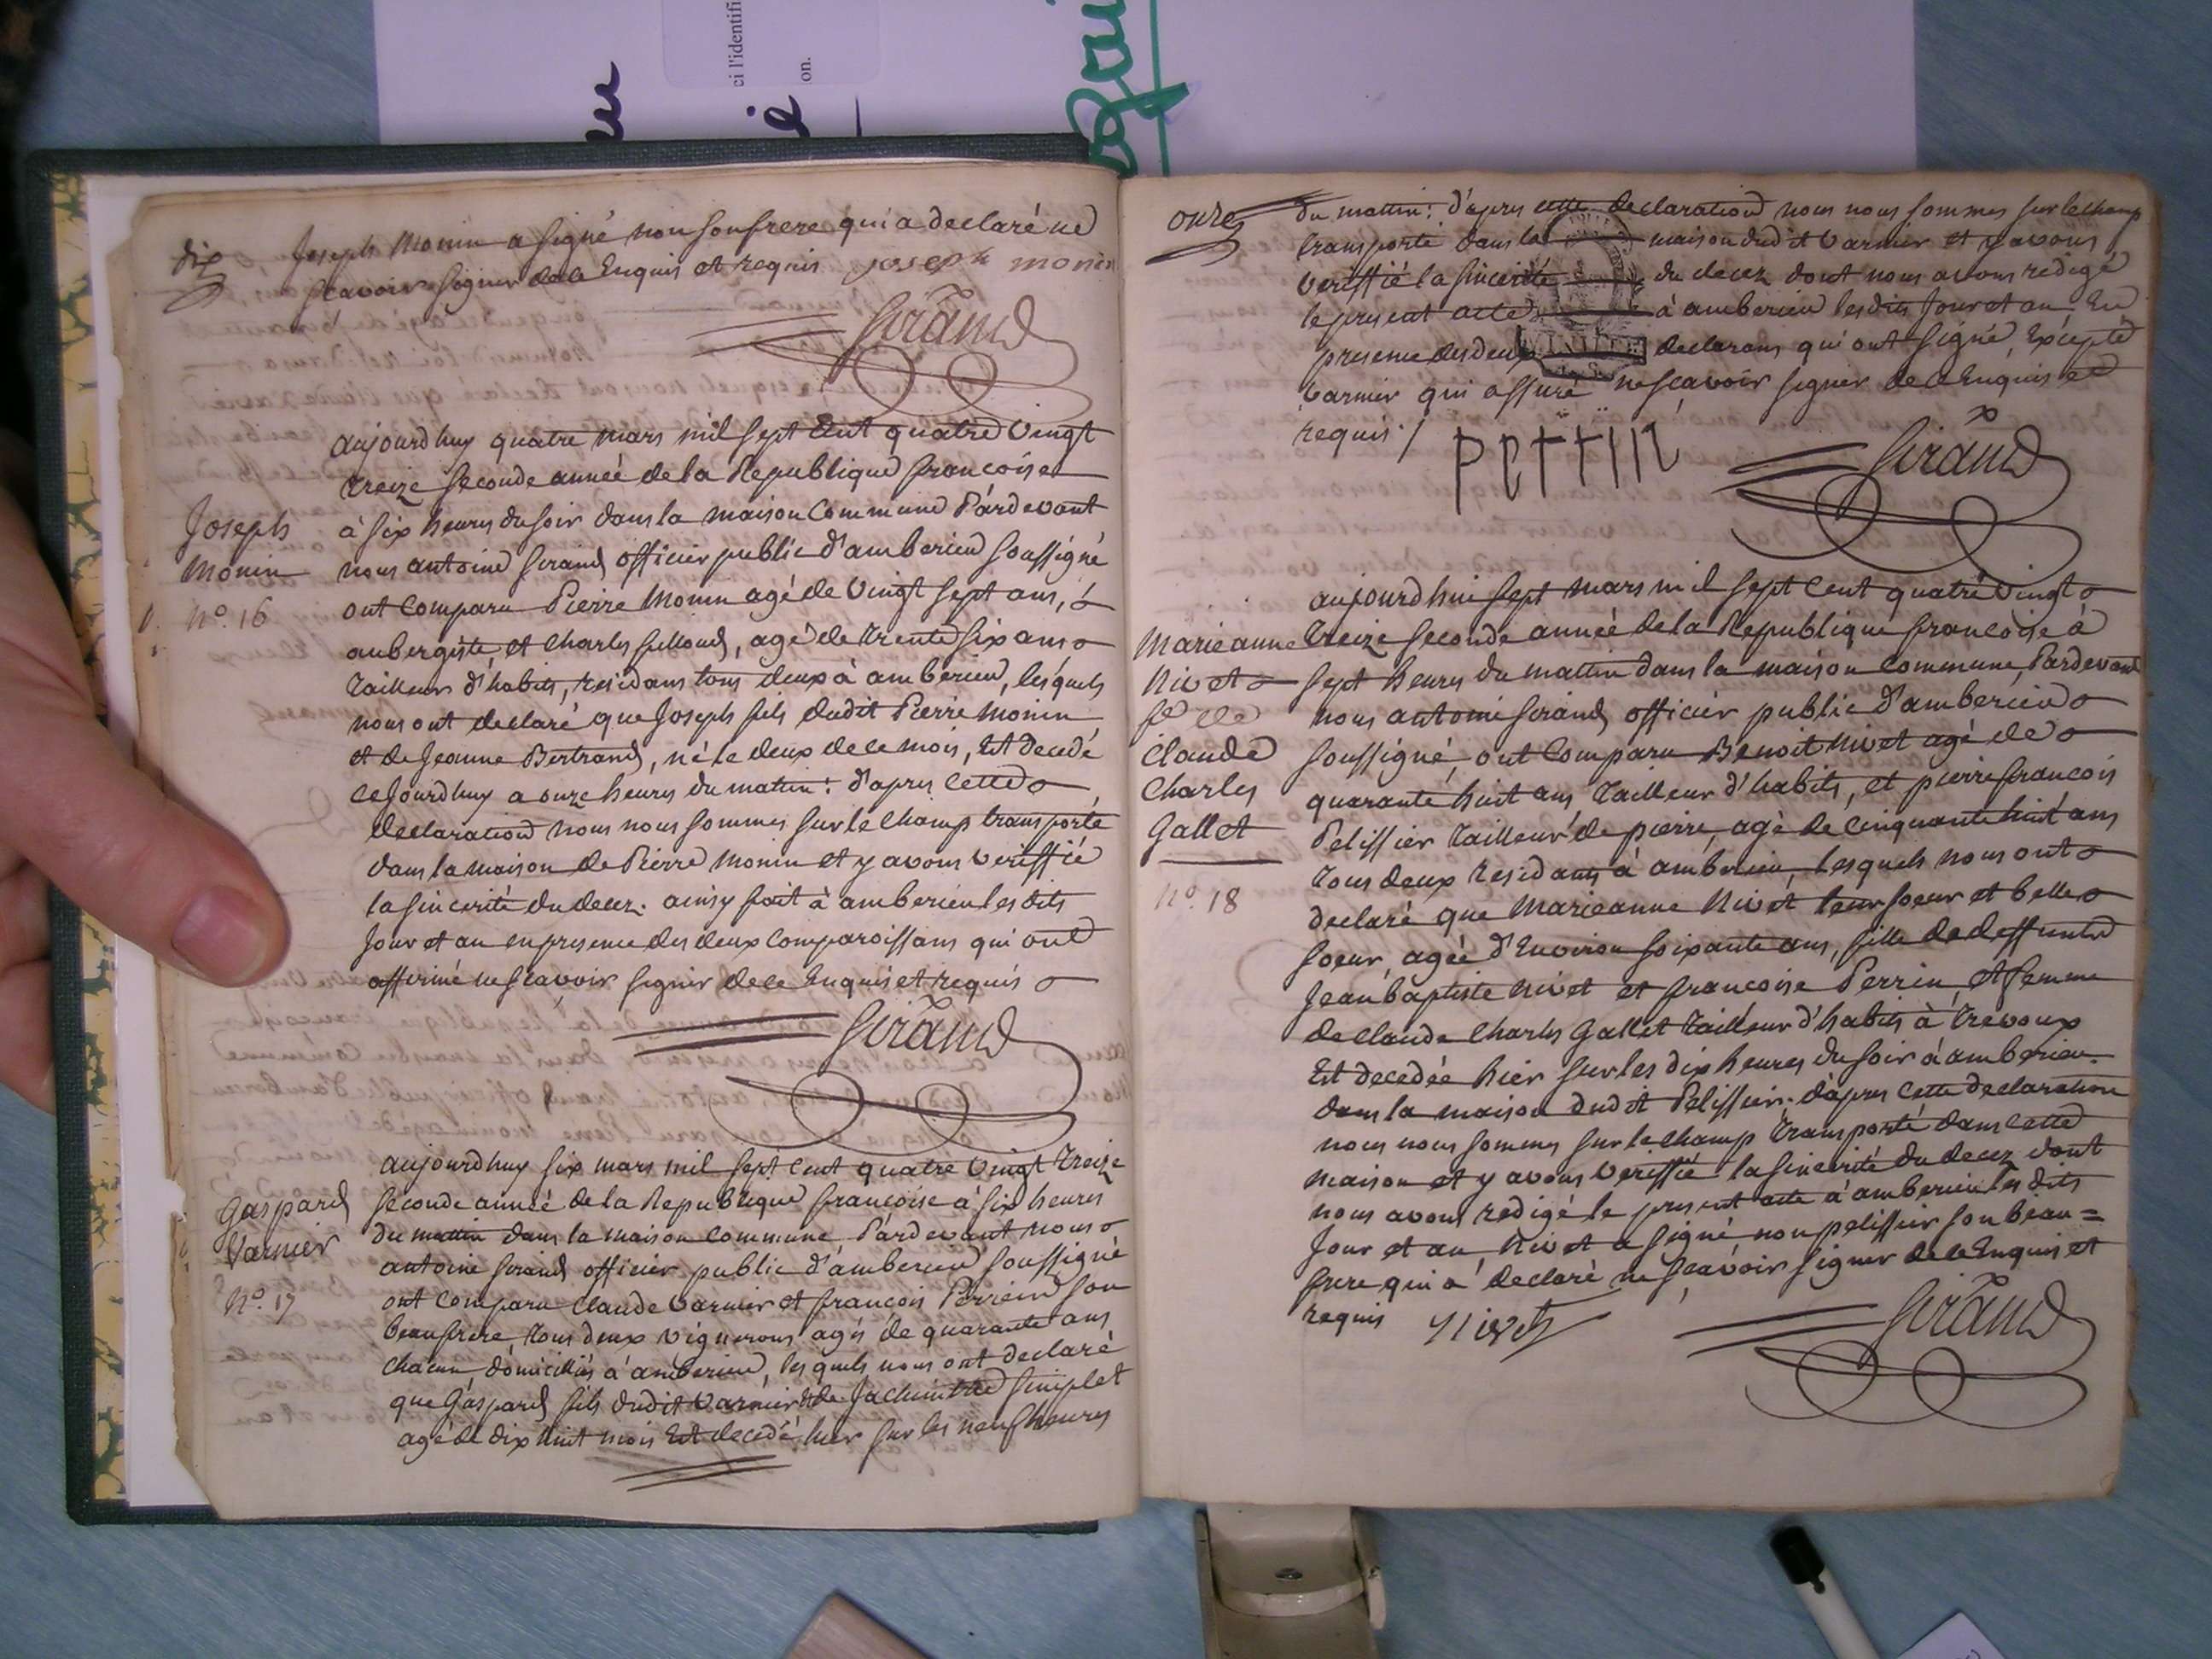 ci l'identifi
on.
dix
Joseph Monin a signé non son frere qui a declaré ne
scavoir signer de ce Enquis et requis joseph monin
Giraud
Joseph
Monin
n.º 16
aujourdhuy quatre mars mil sept Cent quatre vingt
treize seconde année de la Republique francoise
à six heures du soir dans la maison Commune Pardevant
nous antoine Giraud officier public d'amberieu soussigné
ont Comparu Pierre Monin agé de vingt sept ans,
aubergiste, et Charles , agé de trente six ans
tailleur d'habits, residans tous deux à amberieu, lesquels
nous ont declaré que Joseph fils dudit Pierre Monin
et de Jeanne Bertrand, né le deux de ce mois, Est decedé
cejourdhuy a onze heures du matin : d'apres cette
declaration nous nous sommes sur le champ transporté
dans la maison de Pierre Monin et y avons veriffié
la sincerité du decez. ainsy fait à amberieu les dits
Jour et an en presence des deux Comparoissans qui ont
affirmé ne scavoir signer de ce Enquis et requis
Giraud
Gaspard
Varnier
n.º 17
aujourdhuy six mars mil sept Cent quatre vingt treize
seconde année de la Republique francoise à six heures
du mattin dans la maison Commune Pardevant nous
antoine Giraud officier public d'amberieu soussigné
ont Comparu Claude Varnier et francois Perrein son
beaufrere, tous deux vignerons, agés de quarante ans
chacun, domiciliés à amberieu, lesquels nous ont declaré
que Gaspard fils dudit Varnier et de Jachinthe Simplet
agé de dix huit mois Est decedé hier sur les neuf heures
onze
du mattin : d'apres cette declaration nous nous sommes sur le champ
transporté dans la maison dudit Varnier et y avons
veriffié la sincerité du decez dont nous avons redigé
le present acte à amberieu lesdits Jour et an En
presence des deux declarans qui ont signé, Excepté
Varnier qui assuré ne scavoir signer de ce Enquis et
requis ./
Giraud
Marieanne
Nivet
fe de
Claude
Charles
Gallet
n.º 18
aujourdhui sept mars mil sept Cent quatre vingt
treize seconde année de la Republique francoise à
sept heures du mattin dans la maison Commune, Pardevant
nous antoine Giraud officier public d'amberieu
soussigné, ont Comparu Benoit Nivet agé de
quarante huit ans tailleur d'habits, et pierre francois
Pelissier tailleur de pierre, agé de cinquante huit ans
tous deux residans à amberieu, lesquels nous ont
declaré que Marieanne Nivet leur soeur et belle
soeur, agée d'Environ soixante ans, fille de deffunts
Jean baptiste Nivet et francoise Perrin, et femme
de Claude Charles Gallet tailleur d'habits à Trevoux
Est decedée hier sur les dix heures du soir à amberieu
dans la maison dudit Pelissier. d'apres cette declaration
nous nous sommes sur le champ transporté dans cette
maison et y avons veriffié la sincerité du decez dont
nous avons redigé le present acte à amberieu les dits
Jour et an, Nivet a signé non pelissier son beau=
frere qui a declaré ne scavoir signer de ce Enquis et
requis Nivet
Giraud